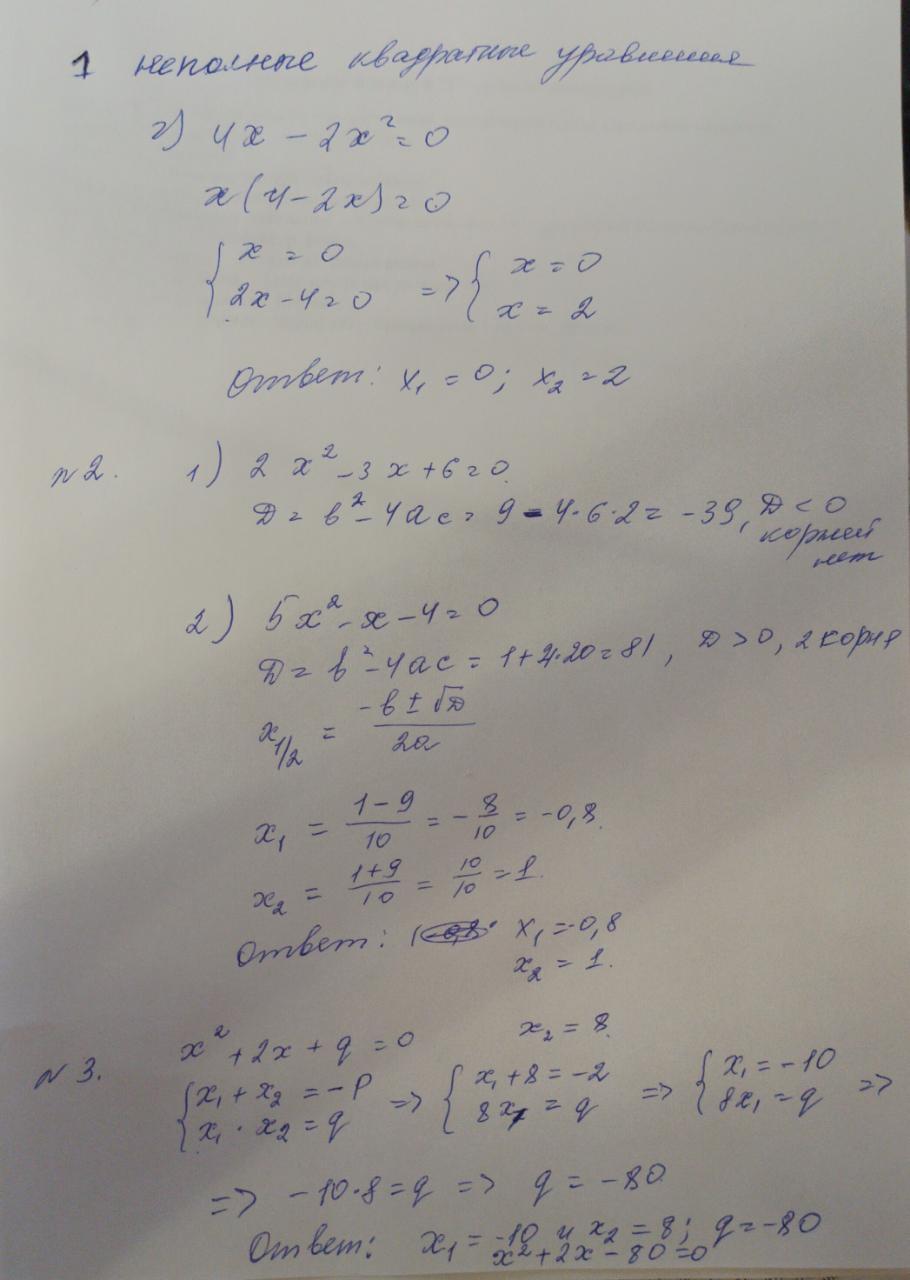 1 неполные квадратные уравнения
г) 4x - 2x² = 0
x(4 - 2x) = 0
{ x = 0
2x - 4 = 0 => { x = 0
x = 2
Ответ: x₁ = 0; x₂ = 2
№2. 1) 2x² - 3x + 6 = 0
D = b² - 4ac = 9 - 4·6·2 = -39, D < 0
корней
нет
2) 5x² - x - 4 = 0
D = b² - 4ac = 1 + 4·20 = 81, D > 0, 2 корня
x₁/₂ = (-b ± √D) / 2a
x₁ = (1 - 9)/10 = -8/10 = -0,8.
x₂ = (1 + 9)/10 = 10/10 = 1.
Ответ: x₁ = -0,8
x₂ = 1.
№3. x² + 2x + q = 0 x₂ = 8.
{ x₁ + x₂ = -p => { x₁ + 8 = -2 => { x₁ = -10
x₁ · x₂ = q 8x₁ = q 8x₁ = q =>
=> -10·8 = q => q = -80
Ответ: x₁ = -10 и x₂ = 8; q = -80
x² + 2x - 80 = 0